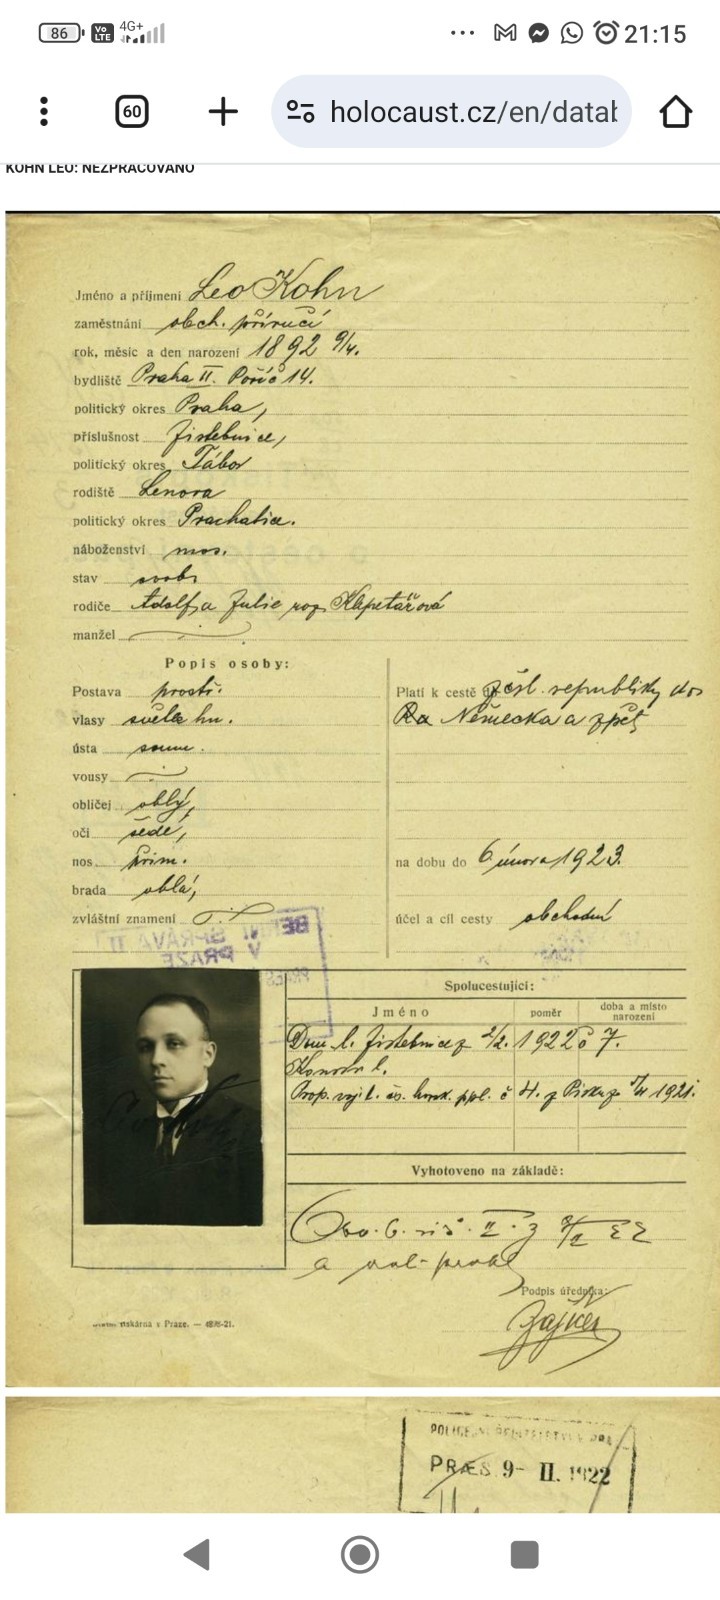 86 Vo LTE 4G+ ... 21:15
60 + holocaust.cz/en/datab
KOHN LEO: NEZPRACOVÁNO
Jméno a příjmení Leo Kohn
zaměstnání obch. příručí
rok, měsíc a den narození 1892 9/4.
bydliště Praha II. Poříč 14.
politický okres Praha,
příslušnost Jistebnice,
politický okres Tábor
rodiště Lenora
politický okres Prachatice.
náboženství mos.
stav svob.
rodiče Adolf a Julie roz. Klapetářová
manžel
Popis osoby:
Postava prostř.
vlasy světle hn.
ústa soum.
vousy
obličej oblý,
oči šedé,
nos přim.
brada oblá,
zvláštní znamení
Platí k cestě z čsl. republiky do
Německa a zpět
na dobu do 6 února 1923.
účel a cíl cesty obchodní
V PRAZE
Spolucestující:
Jméno poměr doba a místo narození
Dom. l. Jistebnice z 2/2. 1922 č 7.
Prop. voj. l. čs. č 4. z Písku z 1921.
Vyhotoveno na základě:
Podpis úředníka:
tiskárna v Praze. —
PRÆS. 9- II. 1922